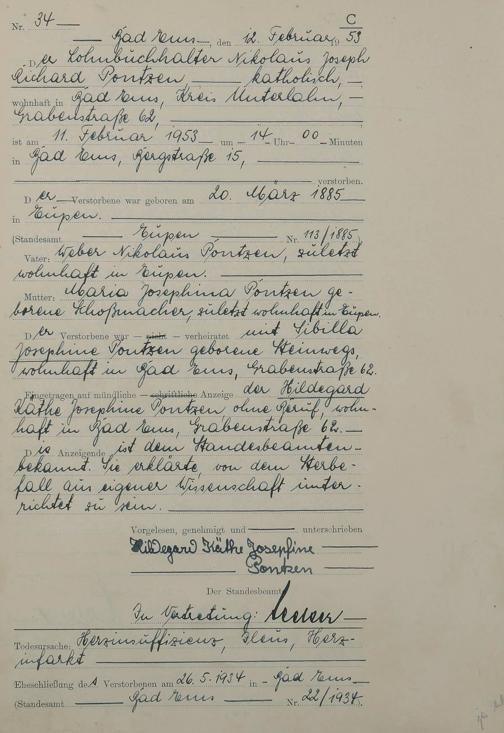 C
Nr. 34
Bad Ems, den 12. Februar 1953
Der Lohnbuchhalter Nikolaus Joseph
Richard Pontzen, katholisch,
wohnhaft in Bad Ems, Kreis Unterlahn,
Grabenstraße 62,
ist am 11. Februar 1953 um 14 Uhr 00 Minuten
in Bad Ems, Bergstraße 15,
verstorben.
Der Verstorbene war geboren am 20. März 1885
in Eupen.
(Standesamt Eupen Nr. 113/1885)
Vater: Weber Nikolaus Pontzen, zuletzt
wohnhaft in Eupen.
Mutter: Maria Josephina Pontzen ge-
borene Schoßmacher, zuletzt wohnhaft in Eupen.
Der Verstorbene war — nicht — verheiratet mit Sibilla
Josephine Pontzen geborene Heinwegs,
wohnhaft in Bad Ems, Grabenstraße 62.
Eingetragen auf mündliche — schriftliche Anzeige der Hildegard
Käthe Josephine Pontzen ohne Beruf, wohn-
haft in Bad Ems, Grabenstraße 62.
Die Anzeigende ist dem Standesbeamten
bekannt. Sie erklärte, von dem Sterbe-
fall aus eigener Wissenschaft unter-
richtet zu sein.
Vorgelesen, genehmigt und unterschrieben
Hildegard Käthe Josefine
Pontzen
Der Standesbeamte
In Vertretung:
Todesursache: Herzinsuffizienz, Ileus, Herz-
infarkt
Eheschließung des Verstorbenen am 26.5.1934 in Bad Ems
(Standesamt Bad Ems Nr. 22/1934).